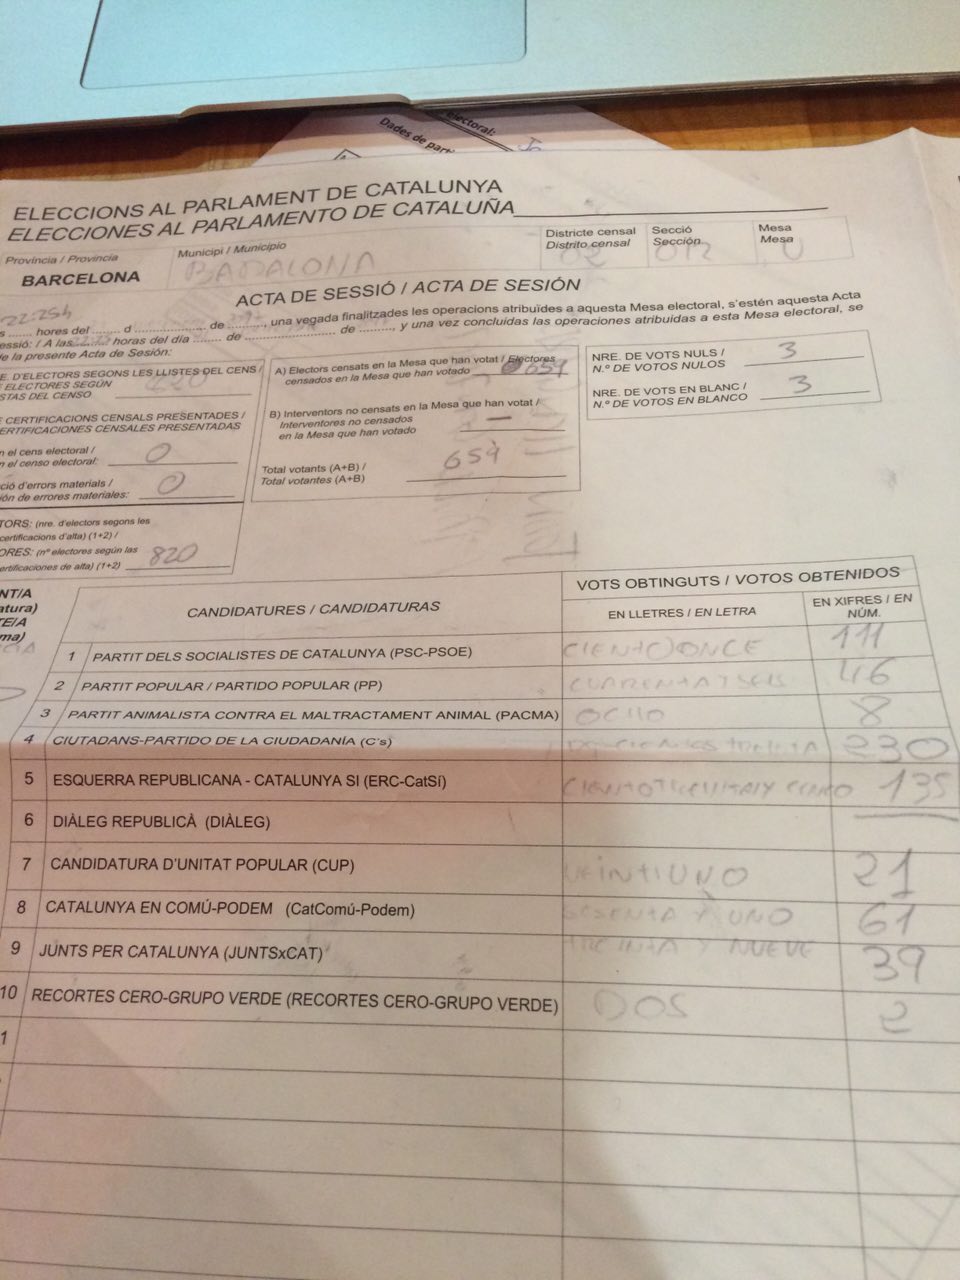 electoral:
Dades de part
ELECCIONS AL PARLAMENT DE CATALUNYA
ELECCIONES AL PARLAMENTO DE CATALUÑA
Provincia / Provincia
BARCELONA
Municipi / Municipio
BADALONA
Districte censal
Distrito censal
02
Secció
Sección
012
Mesa
Mesa
U
ACTA DE SESSIÓ / ACTA DE SESIÓN
hores del ........ d ........ de ........, una vegada finalitzades les operacions atribuïdes a aquesta Mesa electoral, s'estén aquesta Acta
essió: / A las ........ horas del día ........ de ........ de ........, y una vez concluidas las operaciones atribuidas a esta Mesa electoral, se
de la presente Acta de Sesión:
E. D'ELECTORS SEGONS LES LLISTES DEL CENS /
ELECTORES SEGÚN
STAS DEL CENSO 820
CERTIFICACIONS CENSALS PRESENTADES /
ERTIFICACIONES CENSALES PRESENTADAS
n el cens electoral /
n el censo electoral: 0
ció d'errors materials /
ión de errores materiales: 0
TORS: (nre. d'electors segons les
certificacions d'alta) (1+2) /
ORES: (nº electores según las
ertificaciones de alta) (1+2) 820
A) Electors censats en la Mesa que han votat / Electores
censados en la Mesa que han votado 659
B) Interventors no censats en la Mesa que han votat /
Interventores no censados
en la Mesa que han votado —
Total votants (A+B) /
Total votantes (A+B) 659
NRE. DE VOTS NULS /
N.º DE VOTOS NULOS 3
NRE. DE VOTS EN BLANC /
N.º DE VOTOS EN BLANCO 3
NT/A
atura)
TE/A
ma)
CANDIDATURES / CANDIDATURAS
VOTS OBTINGUTS / VOTOS OBTENIDOS
EN LLETRES / EN LETRA
EN XIFRES / EN
NÚM.
1 PARTIT DELS SOCIALISTES DE CATALUNYA (PSC-PSOE) CIENTO ONCE 111
2 PARTIT POPULAR / PARTIDO POPULAR (PP) CUARENTA Y SEIS 46
3 PARTIT ANIMALISTA CONTRA EL MALTRACTAMENT ANIMAL (PACMA) OCHO 8
4 CIUTADANS-PARTIDO DE LA CIUDADANÍA (C's) 230
5 ESQUERRA REPUBLICANA - CATALUNYA SI (ERC-CatSí) 135
6 DIÀLEG REPUBLICÀ (DIÀLEG)
7 CANDIDATURA D'UNITAT POPULAR (CUP) VEINTIUNO 21
8 CATALUNYA EN COMÚ-PODEM (CatComú-Podem) SESENTA Y UNO 61
9 JUNTS PER CATALUNYA (JUNTSxCAT) TREINTA Y NUEVE 39
10 RECORTES CERO-GRUPO VERDE (RECORTES CERO-GRUPO VERDE) DOS 2
1